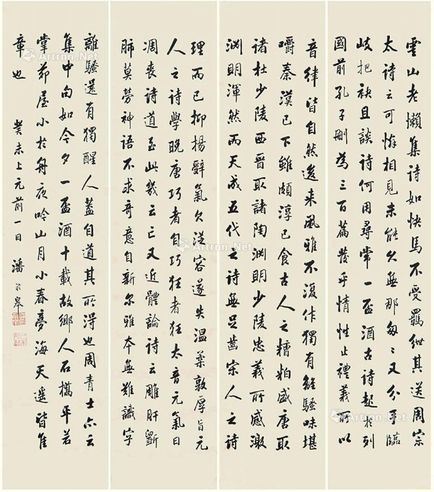 雲山老懶集詩如快馬不受羈紲其送周宗
太詩云可憐相見未能久無那匆匆又分手臨
歧把袂且談詩何用尋常一盃酒古詩起於列
國前孔子刪為三百篇發乎情性止禮義所以
音律皆自然邇來風雅不復作獨有經騷味堪
嚼秦漢已下雖頗淳已食古人之糟粕盛唐取
諸杜少陵西晉取諸陶淵明少陵忠義所感激
淵明渾然而天成五代之詩無足齒宋人之詩
理而已抑揚騁氣欠從容遂失温柔敦厚旨元
人之詩學晚唐巧者自巧狂者狂太音元氣日
凋喪詩道至此幾云亡又近體論詩云雕肝斲
肺莫勞神語不求奇意自新爾雅本無難識字
離騷還有獨醒人蓋自道其所得也周青士亦云
集中句如今夕一盃酒十載故鄉人石橋平若
掌茆屋小於舟夜吟山月小春夢海天遥皆佳
章也 癸未上元前一日 潘齡皋